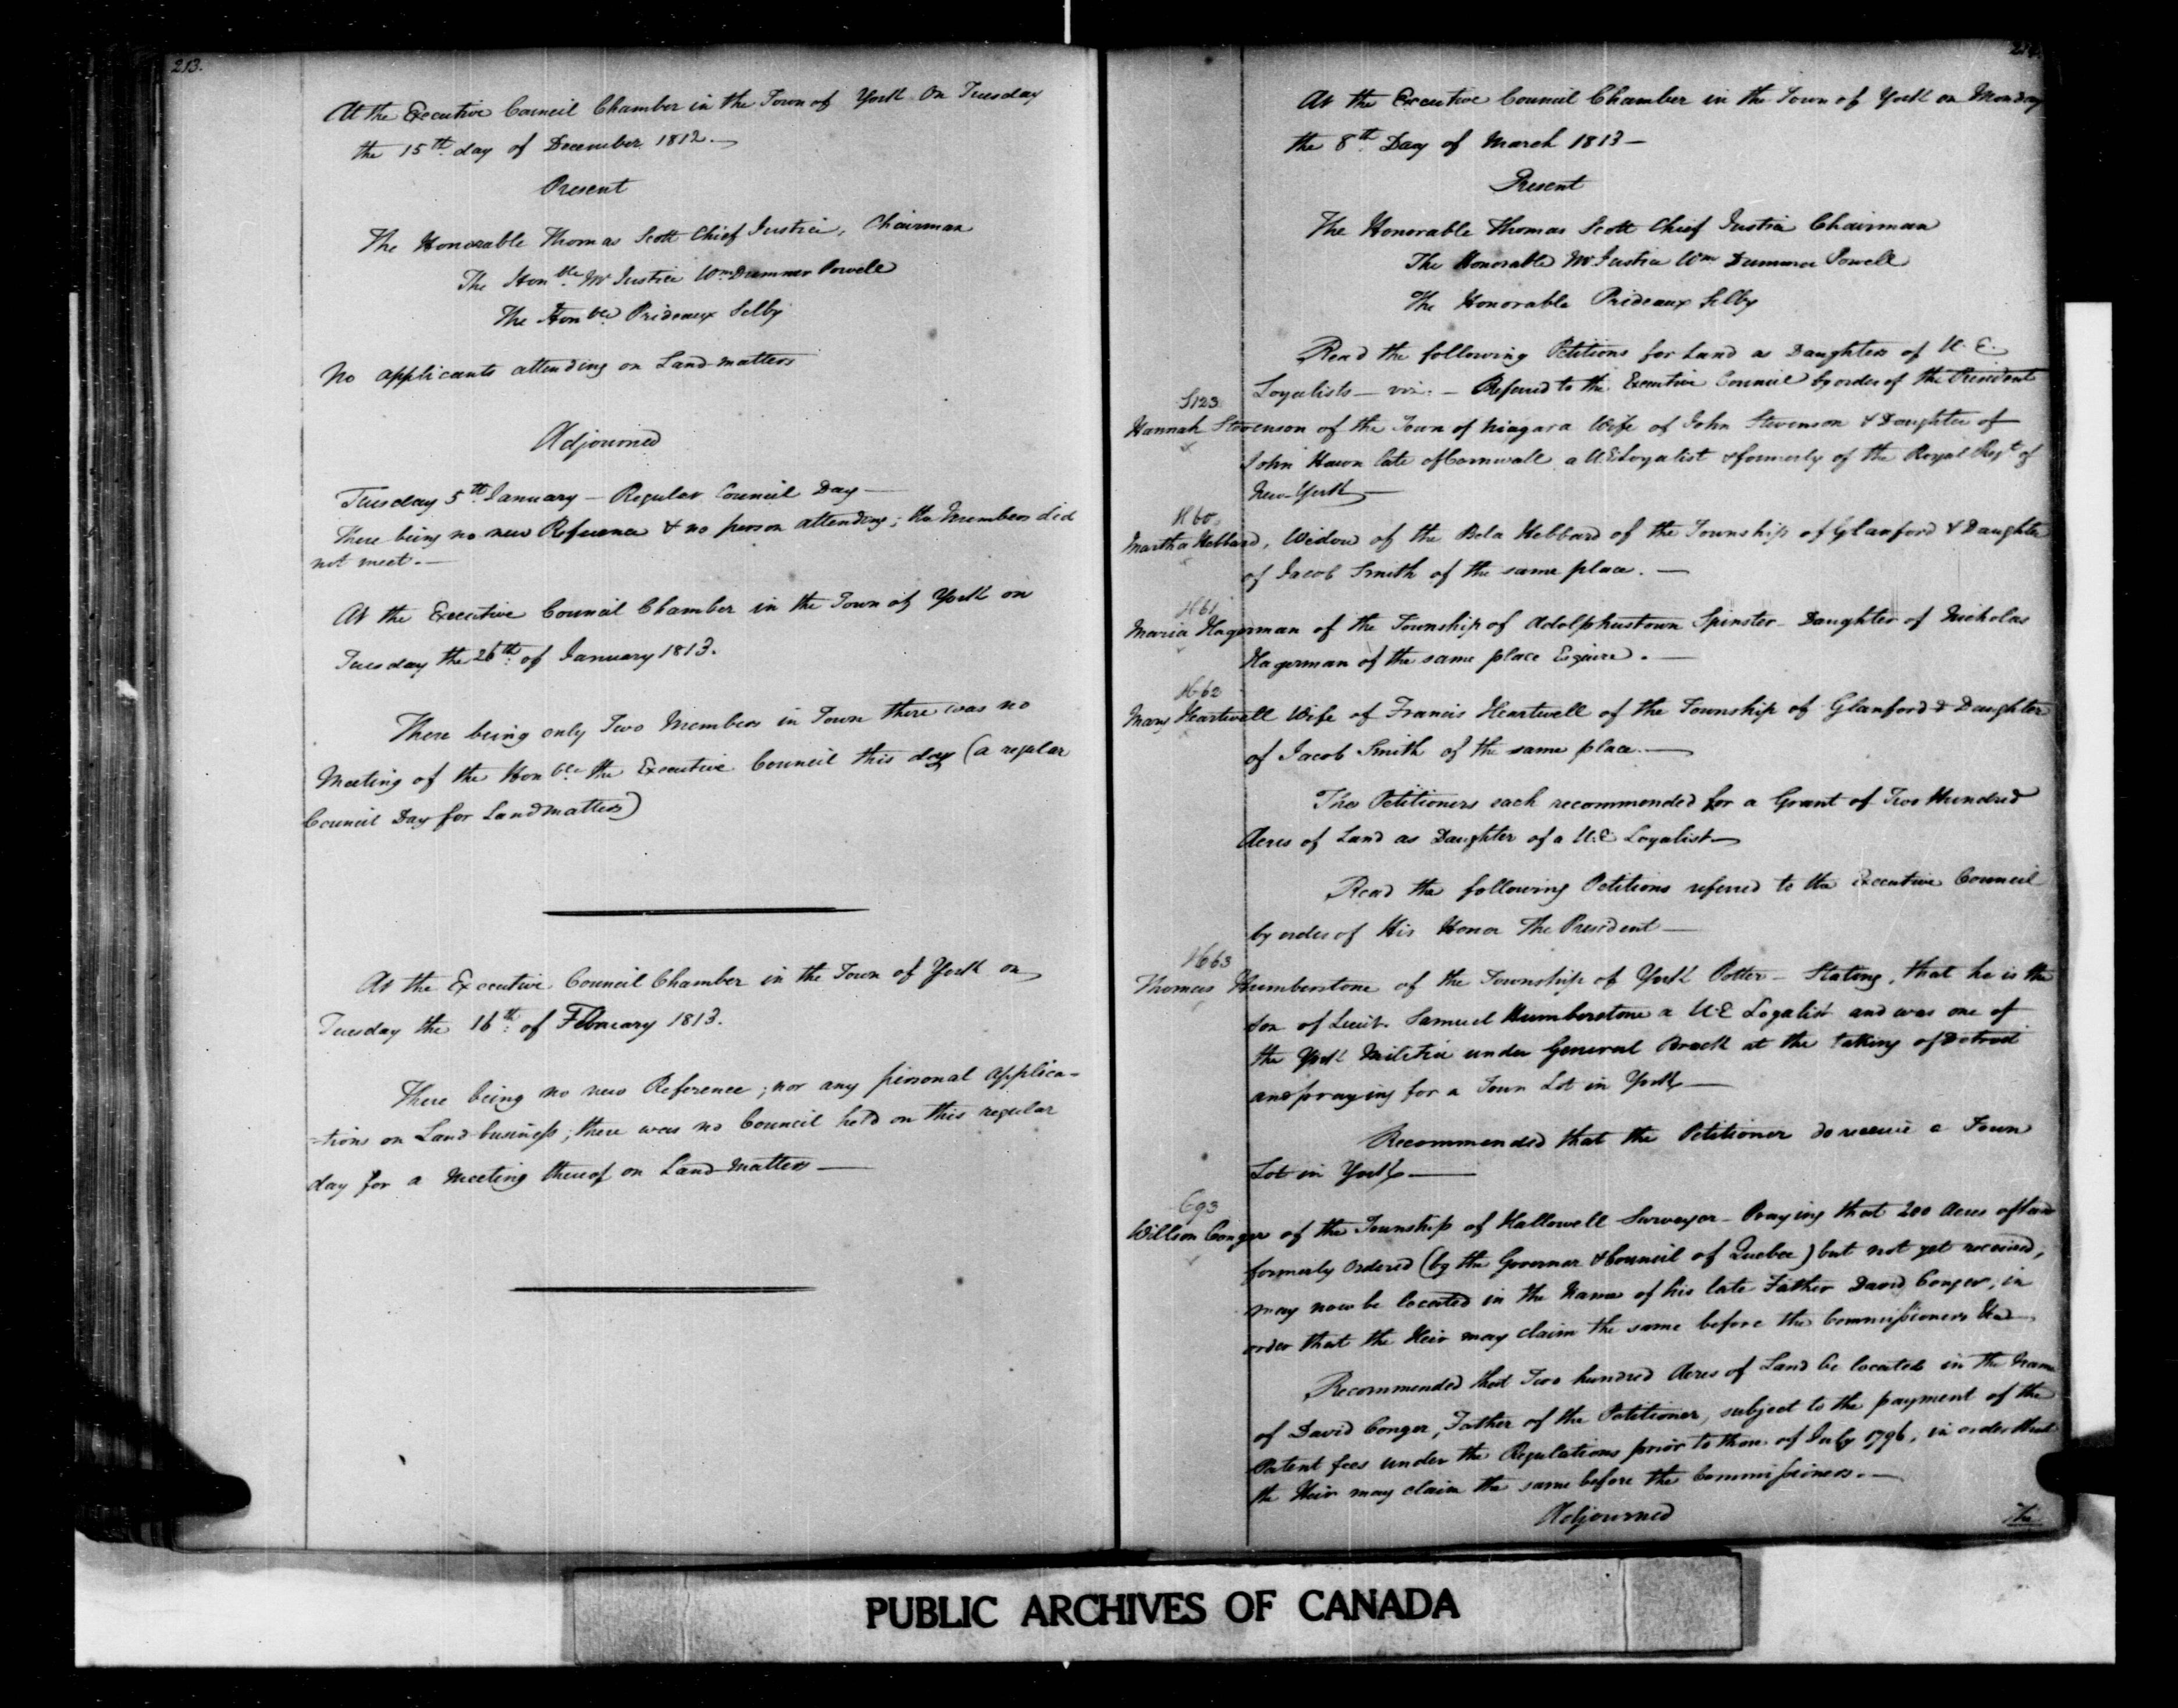 213.
At the Executive Council Chamber in the Town of York On Tuesday
the 15th day of December 1812.
Present
The Honorable Thomas Scott Chief Justice, Chairman
The Honble Mr Justice Wm Dummer Powell
The Honble Prideaux Selby
No applicants attending on Land matters
Adjourned
Tuesday 5th January – Regular Council Day —
There being no new Reference & no person attending; the Members did
not meet. —
At the Executive Council Chamber in the Town of York on
Tuesday the 26th of January 1813.
There being only Two Members in Town there was no
Meeting of the Honble the Executive Council this day (a regular
Council Day for Land matters)
At the Executive Council Chamber in the Town of York on
Tuesday the 16th of February 1813.
There being no new Reference; nor any personal applica-
-tions on Land business; there was no Council held on this regular
day for a Meeting thereof on Land-Matters —
214.
At the Executive Council Chamber in the Town of York on Monday
the 8th Day of March 1813 —
Present
The Honorable Thomas Scott Chief Justice Chairman
The Honorable Mr Justice Wm Dummer Powell
The Honorable Prideaux Selby
Read the following Petitions for Land as Daughters of U.E.
Loyalists – viz. – Referred to the Executive Council by order of the President
S123
Hannah Stevenson of the Town of Niagara Wife of John Stevenson & Daughter of
John Hawn late of Cornwall a UE Loyalist & formerly of the Royal Regt of
New-York —
H60
Martha Hebbard, Widow of the Bela Hebbard of the Township of Glanford & Daughter
of Jacob Smith of the same place. —
H61
Maria Hagerman of the Township of Adolphustown Spinster – Daughter of Nicholas
Hagerman of the same place Esquire. —
H62
Mary Heartwell Wife of Francis Heartwell of the Township of Glanford & Daughter
of Jacob Smith of the same place. —
The Petitioners each recommended for a Grant of Two Hundred
Acres of Land as Daughter of a U.E Loyalist —
Read the following Petitions referred to the Executive Council
by order of His Honor The President —
H63
Thomas Humberstone of the Township of York Potter – Stating, that he is the
Son of Lieut. Samuel Humberstone a U.E Loyalist and was one of
the York Militia under General Brock at the taking of Detroit
and praying for a Town Lot in York —
Recommended that the Petitioner do receive a Town
Lot in York —
C93
Willson Conger of the Township of Hallowell Surveyor – Praying that 200 Acres of Land
formerly ordered (by the Governor & Council of Quebec) but not yet received,
may now be located in the Name of his late Father David Conger, in
order that the Heir may claim the same before the Commissioners
Recommended that Two hundred Acres of Land be located in the Name
of David Conger, Father of the Petitioner, subject to the payment of the
Patent fees under the Regulations prior to those of July 1796, in order that
the Heir may claim the same before the Commissioners. —
Adjourned
The
PUBLIC ARCHIVES OF CANADA